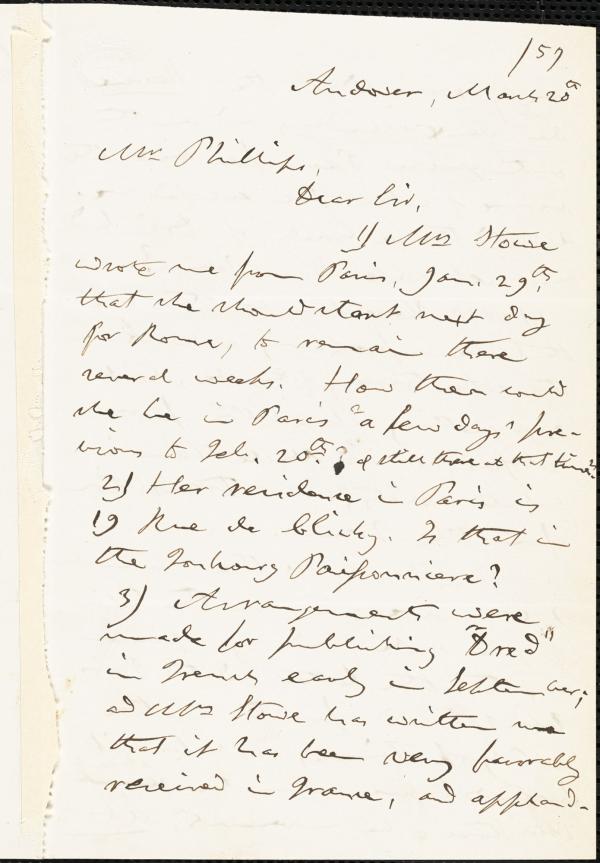 157
Andover, March 20th
Mr. Phillips,
Dear Sir,
1) Mrs Stowe
wrote me from Paris, Jan. 29th,
that she should start next day
for Rome, to remain there
several weeks. How then could
she be in Paris "a few days" pre-
vious to Feb. 20th? & still there at that time?
2) Her residence in Paris is
19 Rue de Clichy. Is that in
the Fouburg Poissonniere?
3) Arrangements were
made for publishing "Dred"
in French early in September;
and Mrs Stowe has written me
that it has been very favorably
received in France, and applaud-